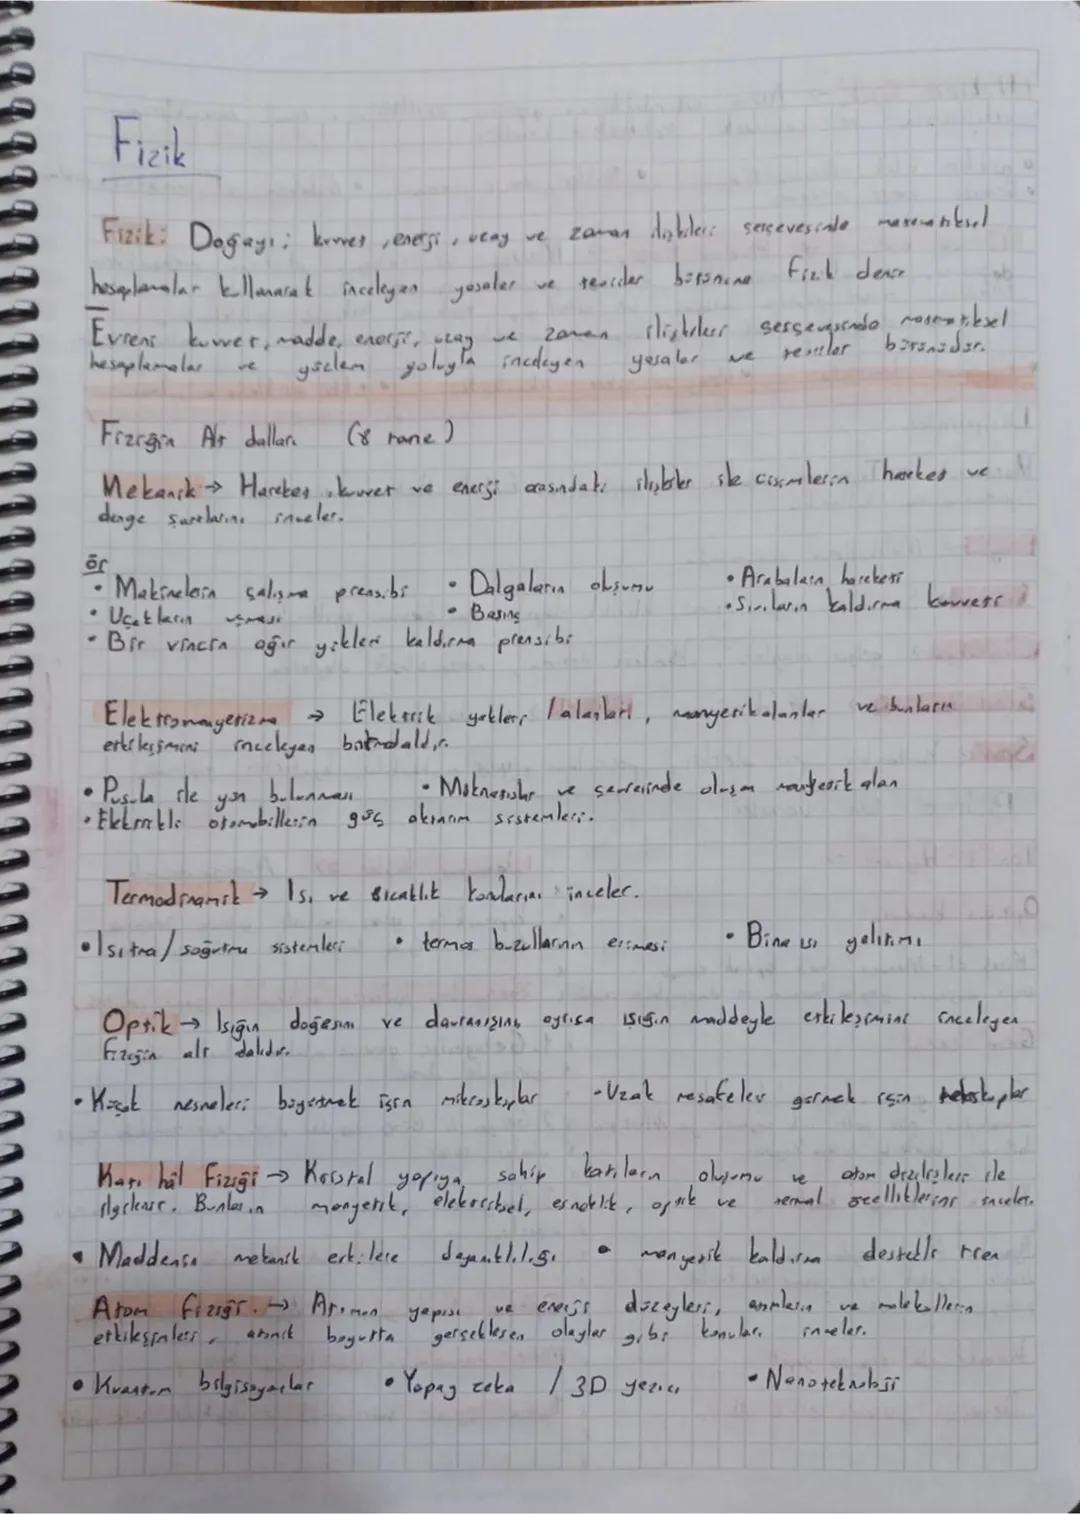 Fizik
Fizik: Doğayı; kuvvet, enerji, uzay ve zaman ilişkileri çerçevesinde matematiksel
hesaplamalar kullanarak inceleyen yasalar ve teoriler bütününe Fizik denir
Evreni kuvvet, madde, enerji, uzay ve zaman ilişkileri çerçevesinde matematiksel
hesaplamalar ve gözlem yoluyla inceleyen yasalar ve teoriler bütünüdür.
Fiziğin Alt dalları (8 tane)
Mekanik → Hareket, kuvvet ve enerji arasındaki ilişkiler ile cisimlerin hareket ve
denge şartlarını inceler.
ör
• Makinelerin çalışma prensibi • Dalgaların oluşumu • Arabaların hareketi
• Uçakların uçması • Basınç • Sıvıların kaldırma kuvveti
• Bir vincin ağır yükleri kaldırma prensibi
Elektromanyetizma → Elektrik yükleri / alanları, manyetik alanlar ve bunların
etkileşimini inceleyen daldır.
• Pusula ile yön bulunması • Mıknatıslar ve çevresinde oluşan manyetik alan
• Elektrikli otomobillerin güç aktarım sistemleri.
Termodinamik → Isı ve sıcaklık konularını inceler.
• Isıtma / soğutma sistemleri • termos buzullarının erimesi • Bina ısı yalıtımı
Optik → Işığın doğasını ve davranışını ayrıca ışığın maddeyle etkileşimini inceleyen
fiziğin alt dalıdır.
• Küçük nesneleri büyütmek için mikroskoplar • Uzak mesafeler görmek için teleskoplar
Katı hâl Fiziği → Kristal yapıya sahip katıların oluşumu ve atom dizilişleri ile
ilgilenir. Bunların manyetik, elektriksel, esneklik, optik ve termal özelliklerini inceler.
• Maddenin mekanik etkilere dayanıklılığı • manyetik kaldırma destekli tren
Atom fiziği. → Atomun yapısı ve enerji düzeyleri, atomların ve moleküllerin
etkileşimleri, atomik boyutta gerçekleşen olaylar gibi konuları inceler.
• Kuantum bilgisayarlar • Yapay zeka / 3D yazıcı • Nanoteknoloji